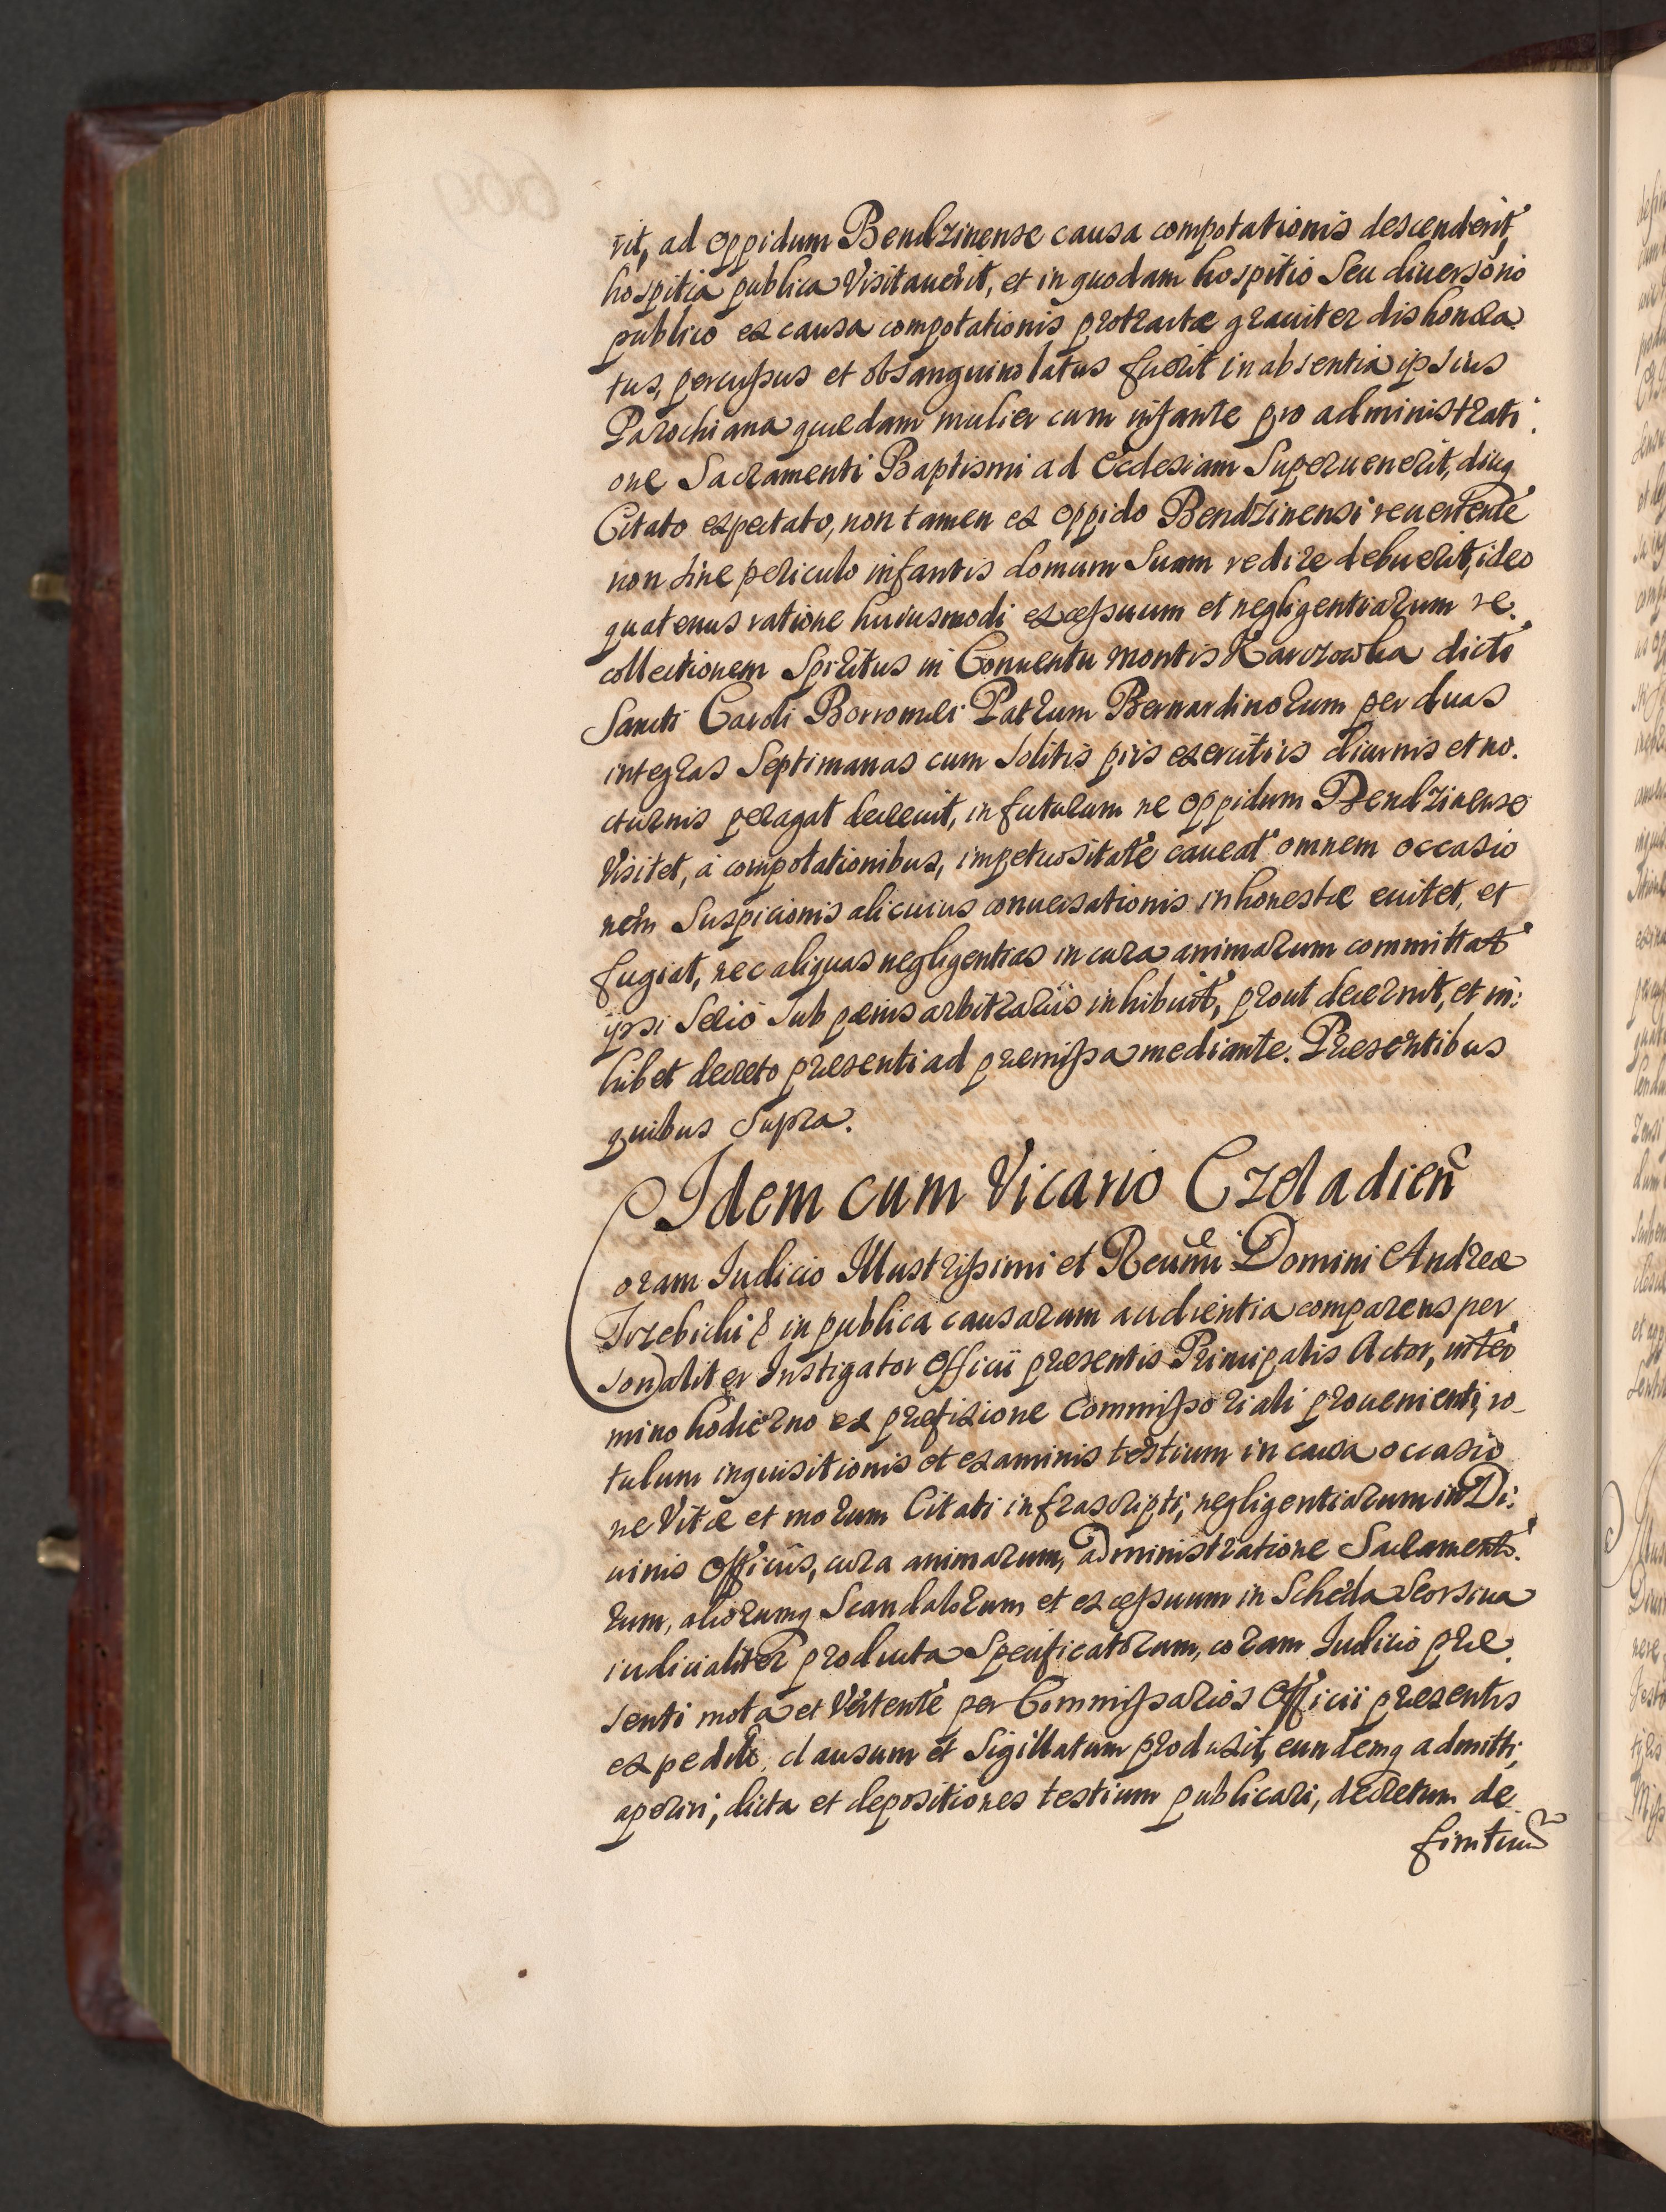 rit, ad oppidum Bendzinense causa compotationis descenderit,
hospitia publica Visitauerit, et in quodam hospitio Seu diuersorio
publico ex causa compotationis protractæ grauiter dishonora.
tus, percussus et obsanguinolatus fuerit in absentia ipsius
Parochiana quædam mulier cum infante pro administrati:
one Sacramenti Baptismi ad Ecclesiam Superuenerit, diuq
Citato expectato, non tamen ex oppido Bendzinensi reuertente
non sine periculo infantis domum Suam redire debuerit, ideo
quatenus ratione huiusmodi excessuum et negligentiarum re.
collectionem Spiritus in Conuentu montis Karczowka dicto
Sancti Caroli Borromei Patrum Bernardinorum per duas
integras Septimanas cum Solitis piis exercitiis diurnis et no.
cturnis peragat decreuit, in futurum ne oppidum Bendzinense
Visitet, à compotationibus, impetuositate caueat omnem occasio
nem Suspicionis alicuius conuersationis inhonestæ euitet, et
fugiat, nec aliquas negligentias in cura animarum committat
ipsi Serio Sub pænis arbitrariis inhibuit, prout decernit, et in:
hibet decreto præsenti ad præmissa mediante. Præsentibus
quibus Supra.
Idem cum Vicario Czeladien
Coram Iudicio Illustrissimi et Reumi Domini Andreæ
Trzebicki in publica causarum audientia comparens per
sonaliter Instigator Officii præsentis Principalis Actor, inter
mino hodierno ex præfixione Commissoriali prouenienti, ro-
tulum inquisitionis et examinis testium in causa occasio
ne Vitæ et morum Citati infrascripti, negligentiarum in Di:
uinis Officiis, cura animarum, administratione Sacrament.
rum, aliorumq Scandalorum et excessuum in Scheda Seorsiua
iudicialiter producta Specificatorum, coram Iudicio præ.
senti mota et Vertente per Commissarios Officii præsentis
expedito, clausum et Sigillatum produxit, eundemq admitti,
aperiri, dicta et depositiones testium publicari, decretum de
finitiu